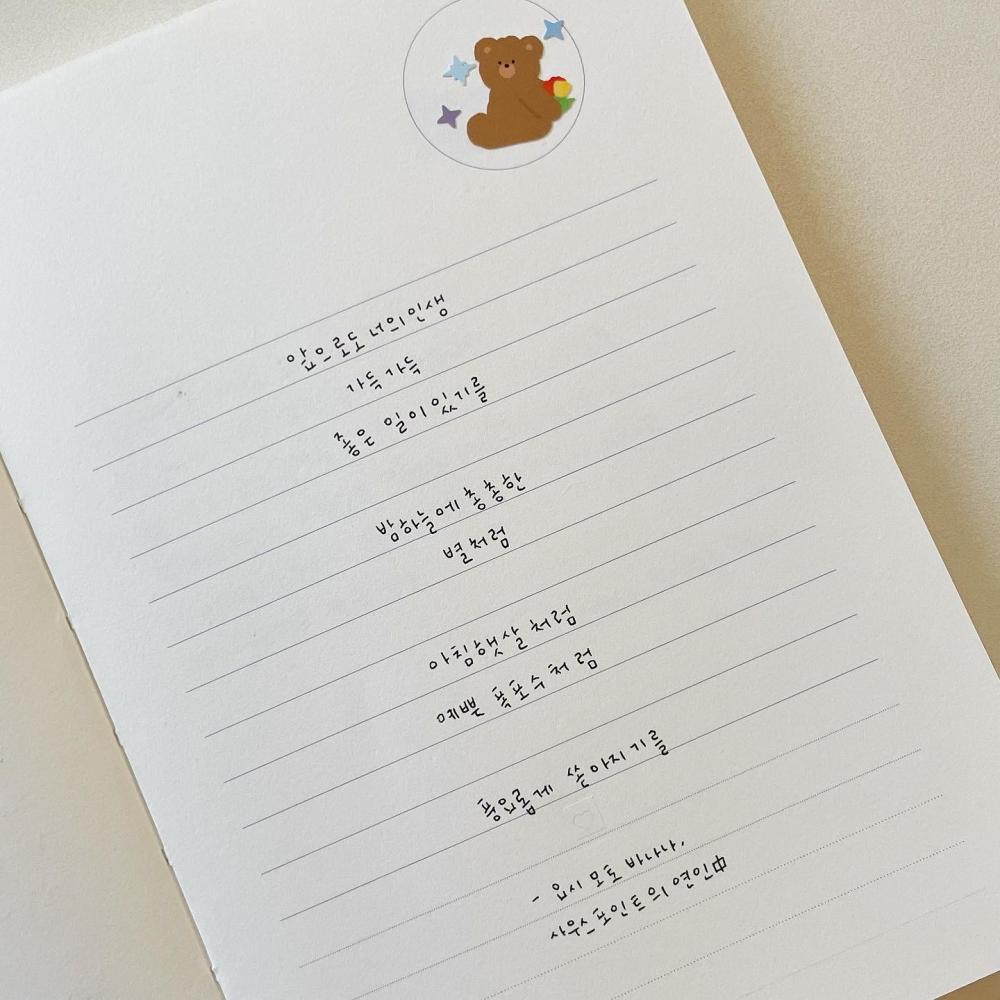 앞으로도 너의 인생
가득 가득
좋은 일이 있기를
밤하늘에 총총한
별처럼
아침햇살처럼
예쁜 폭포수처럼
풍요롭게 쏟아지기를
- 요시모토 바나나,
사우스포인트의 연인中